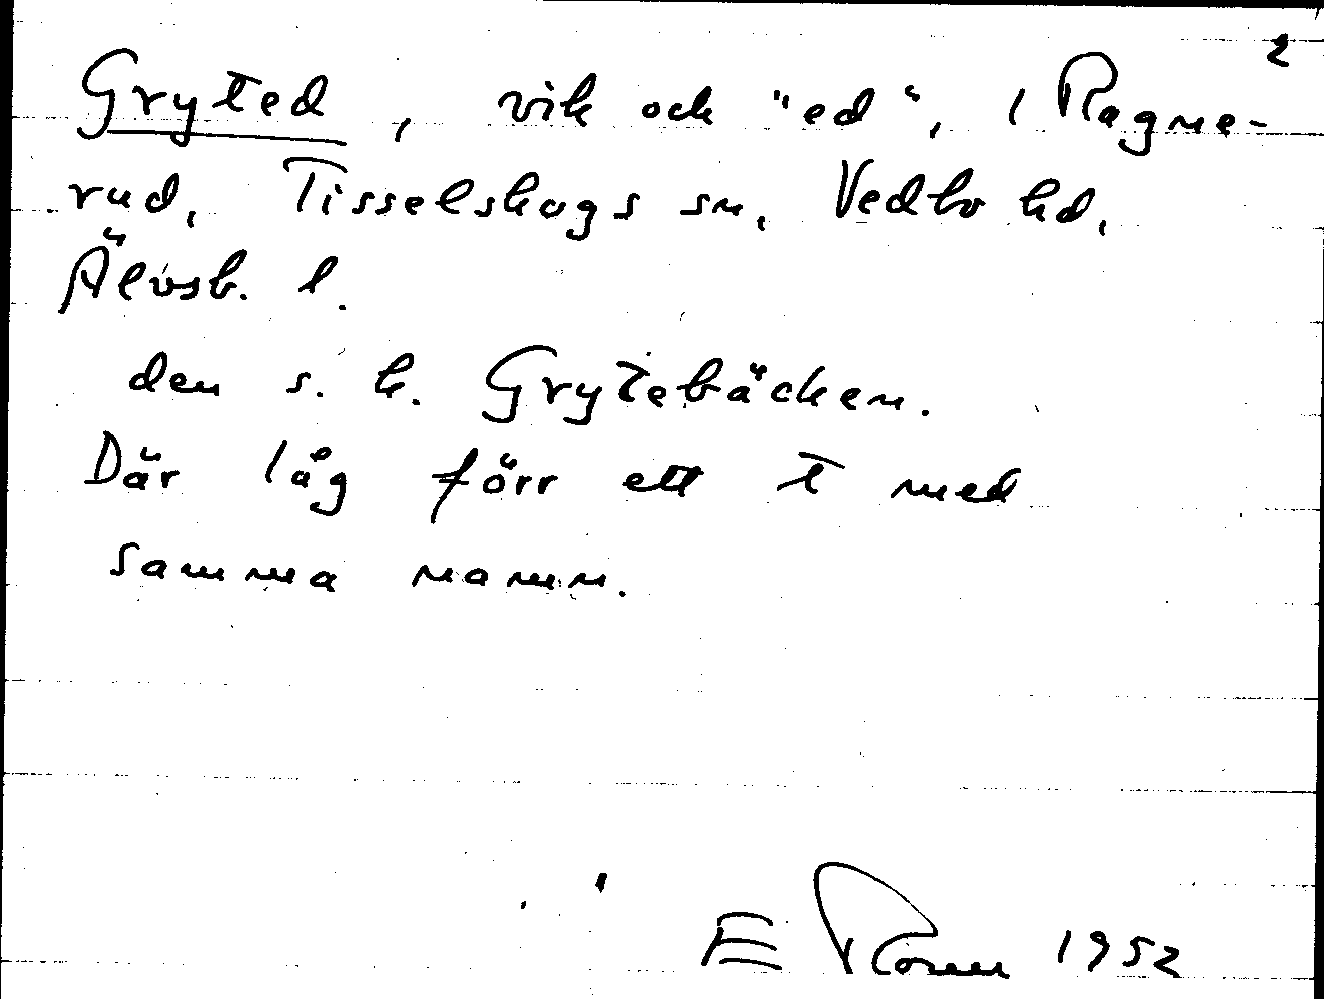 2
Gryted, vik och "ed", i Ragne-
rud, Tisselskogs sn, Vedbo hd,
Älvsb. l.
den s. k. Grytebäcken.
Där låg förr ett t med
samma namn.
E Rosen 1952